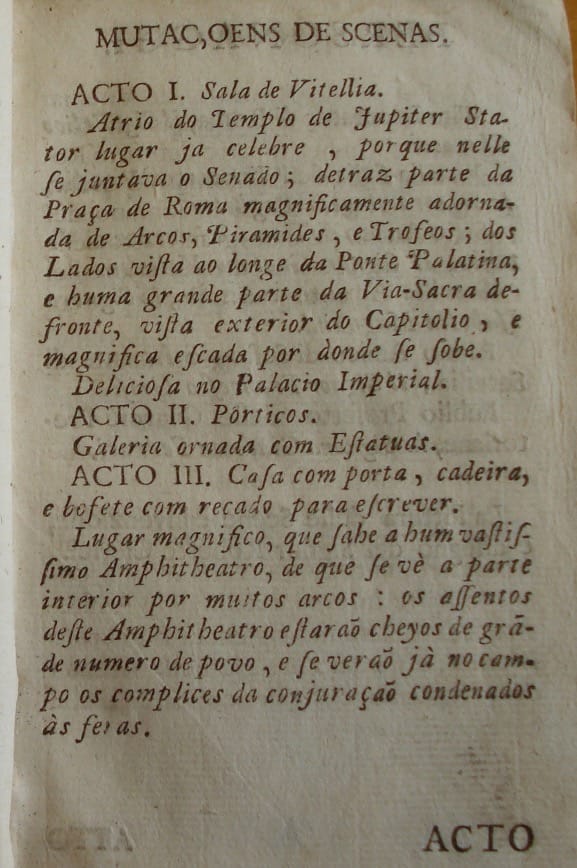 MUTAC,OENS DE SCENAS.
ACTO I. Sala de Vitellia.
Atrio do Templo de Jupiter Sta-
tor lugar ja celebre , porque nelle
ſe juntava o Senado ; detraz parte da
Praça de Roma magnificamente adorna-
da de Arcos, Piramides , e Trofeos ; dos
Lados viſta ao longe da Ponte Palatina,
e huma grande parte da Via-Sacra de-
fronte, viſta exterior do Capitolio , e
magnifica eſcada por donde ſe ſobe.
Delicioſa no Palacio Imperial.
ACTO II. Pôrticos.
Galeria ornada com Eſtatuas.
ACTO III. Caſa com porta , cadeira,
e bofete com recado para eſcrever.
Lugar magnifico, que ſahe a hum vaſtiſ-
ſimo Amphitheatro, de que ſe vè a parte
interior por muitos arcos : os aſſentos
deſte Amphitheatro eſtaraõ cheyos de grã-
de numero de povo , e ſe veraõ jà no cam-
po os complices da conjuraçaõ condenados
às feras.
ACTO